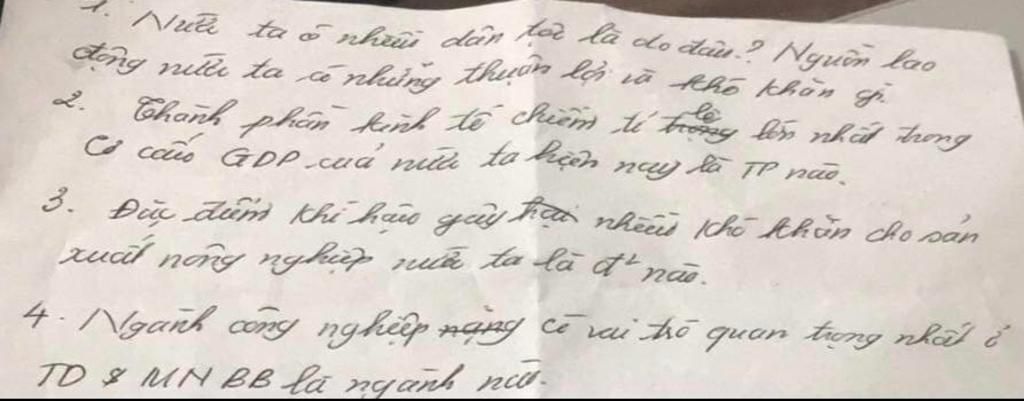 1. Nước ta có nhiều dân tộc là do đâu? Nguồn lao
động nước ta có những thuận lợi và khó khăn gì.
2. Thành phần kinh tế chiếm tỉ lệ lớn nhất trong
Cơ cấu GDP của nước ta hiện nay là TP nào.
3. Đặc điểm khí hậu gây nhiều khó khăn cho sản
xuất nông nghiệp nước ta là đ² nào.
4. Ngành công nghiệp có vai trò quan trọng nhất ở
TD & MN BB là ngành nào.